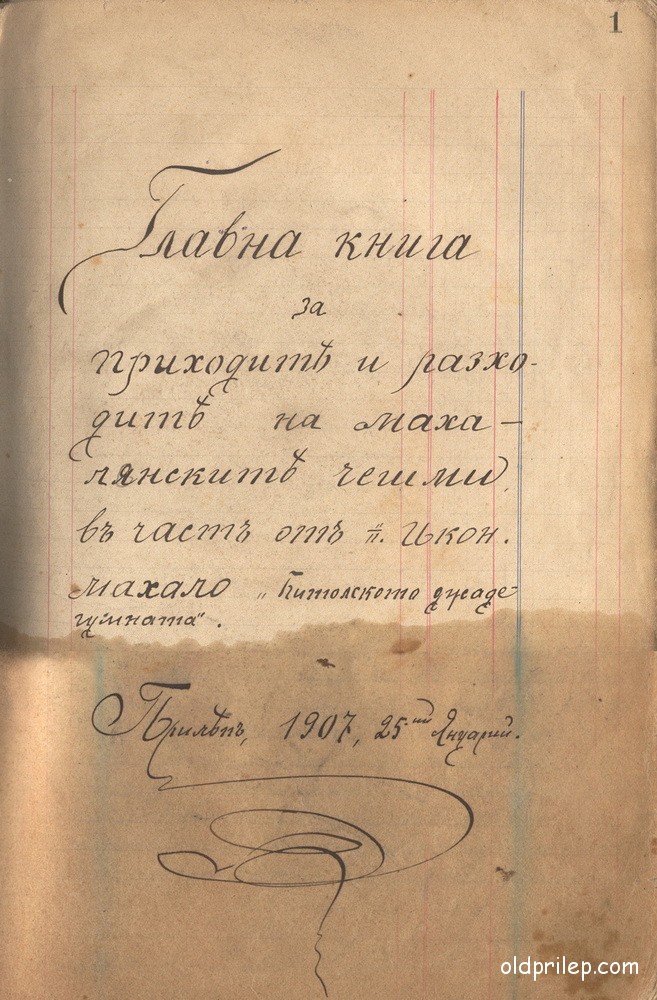 1
Главна книга
за
приходитѣ и разхо-
дитѣ на маха-
лянскитѣ чешми
въ часть отъ II. Икон.
махало „Битолското джаде-
гумната“.
Прилѣпъ, 1907, 25ий Януарий.
oldprilep.com